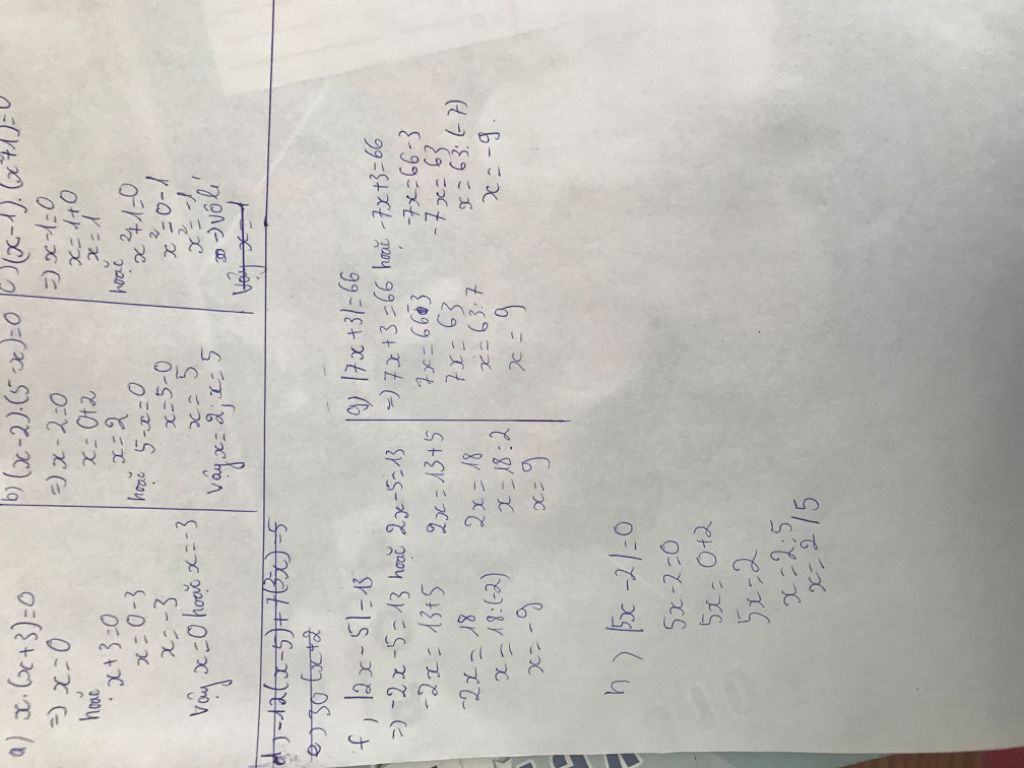 a) x.(x+3)=0
=) x=0
hoặc
x+3=0
x=0-3
x=-3
Vậy x=0 hoặc x=-3
b) (x-2).(5-x)=0
=) x-2=0
x=0+2
x=2
hoặc 5-x=0
x=5-0
x=5
Vậy x=2, x=5
c) (x-1).(x²+1)=0
=) x-1=0
x=1+0
x=1
hoặc
x²+1=0
x²=0-1
x²=-1
=) Vô lí
Vậy x=1
d) -12(x-5)+7(3x)-5
e) 30(x+2
f, |2x-5|=13
=) -2x-5=13 hoặc 2x-5=13
-2x=13+5 2x=13+5
-2x=18 2x=18
x=18:(-2) x=18:2
x=-9 x=9
g) |7x+3|=66
=) 7x+3=66 hoặc -7x+3=66
7x=66-3 -7x=66-3
7x=63 -7x=63
x=63:7 x=63:(-7)
x=9 x=-9.
h) |5x-2|=0
5x-2=0
5x=0+2
5x=2
x=2:5
x=2/5